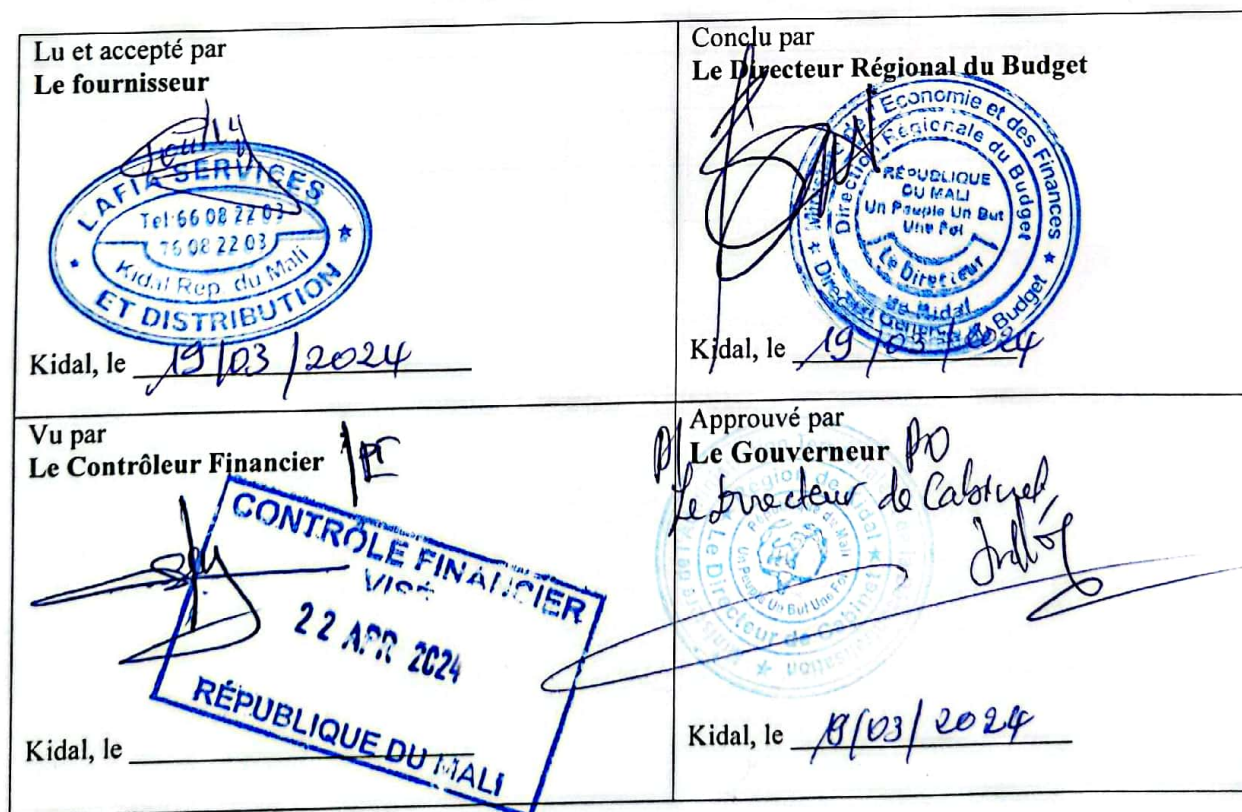 Lu et accepté par
Le fournisseur
LAFIA SERVICES
Tel: 66 08 22 03
76 08 22 03
Kidal Rep. du Mali
ET DISTRIBUTION
Kidal, le 19/03/2024
Conclu par
Le Directeur Régional du Budget
Ministère de l'Economie et des Finances
Direction Régionale du Budget
RÉPUBLIQUE
DU MALI
Un Peuple Un But
Une Foi
Le Directeur
de Kidal
Direction Générale du Budget
Kidal, le 19/03/2024
Vu par
Le Contrôleur Financier
PI
CONTRÔLE FINANCIER
VISÉ
22 APR 2024
RÉPUBLIQUE DU MALI
Kidal, le
Approuvé par
P/ Le Gouverneur PO
Le Directeur de Cabinet
Région de Kidal
République du Mali
Un Peuple Un But Une Foi
Le Directeur de Cabinet
Kidal, le 19/03/2024